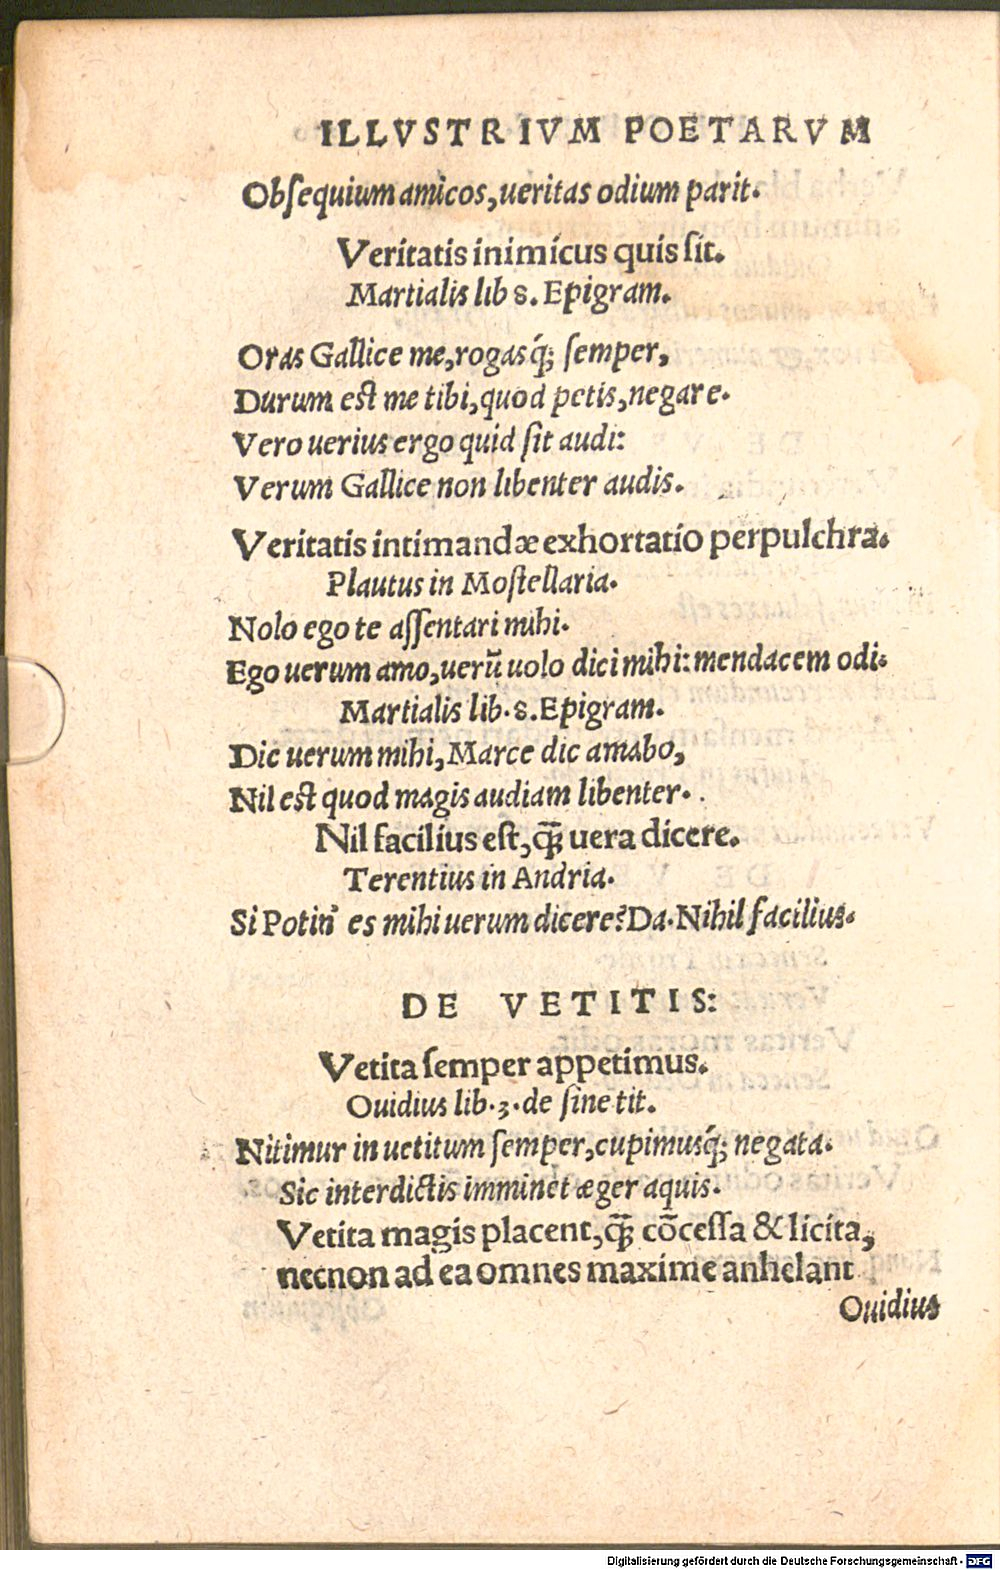 ILLVSTRIVM POETARVM
Obſequium amicos, ueritas odium parit.
Veritatis inimicus quis ſit.
Martialis lib 8. Epigram.
Oras Gallice me, rogasq́; ſemper,
Durum eſt me tibi, quod petis, negare.
Vero uerius ergo quid ſit audi:
Verum Gallice non libenter audis.
Veritatis intimandæ exhortatio perpulchra.
Plautus in Moſtellaria.
Nolo ego te aſſentari mihi.
Ego uerum amo, uerũ uolo dici mihi: mendacem odi.
Martialis lib. 8. Epigram.
Dic uerum mihi, Marce dic amabo,
Nil eſt quod magis audiam libenter.
Nil facilius eſt, q̃ȝ uera dicere.
Terentius in Andria.
Si Potin' es mihi uerum dicere? Da. Nihil facilius.
DE VETITIS:
Vetita ſemper appetimus.
Ouidius lib. 3. de ſine tit.
Nitimur in uetitum ſemper, cupimusq́; negata.
Sic interdictis imminet æger aquis.
Vetita magis placent, q̃ȝ cõceſſa & licita,
necnon ad ea omnes maxime anhelant
Ouidius
Digitalisierung gefördert durch die Deutsche Forschungsgemeinschaft - DFG